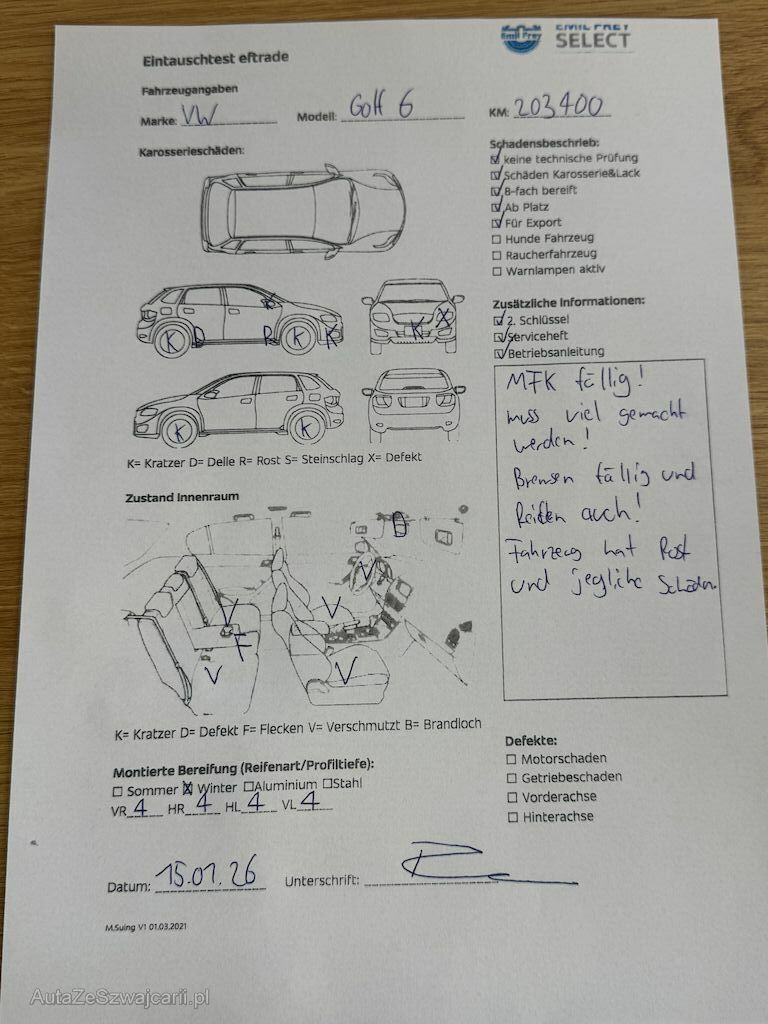 Emil Frey
EMIL FREY
SELECT
Eintauschtest eftrade
Fahrzeugangaben
Marke: VW Modell: Golf 6 KM: 203400
Karosserieschäden:
Schadensbeschrieb:
keine technische Prüfung
Schäden Karosserie&Lack
8-fach bereift
Ab Platz
Für Export
Hunde Fahrzeug
Raucherfahrzeug
Warnlampen aktiv
K D R K K
K X
K K
K= Kratzer D= Delle R= Rost S= Steinschlag X= Defekt
Zusätzliche Informationen:
2. Schlüssel
Serviceheft
Betriebsanleitung
MFK fällig!
muss viel gemacht
werden!
Bremsen fällig und
Reifen auch!
Fahrzeug hat Rost
und jegliche Schäden.
Zustand Innenraum
V
V V
F
V V
K= Kratzer D= Defekt F= Flecken V= Verschmutzt B= Brandloch
Montierte Bereifung (Reifenart/Profiltiefe):
Sommer X Winter Aluminium Stahl
VR 4 HR 4 HL 4 VL 4
Defekte:
Motorschaden
Getriebeschaden
Vorderachse
Hinterachse
Datum: 15.01.26 Unterschrift:
M.Suing V1 01.03.2021
AutaZeSzwajcarii.pl